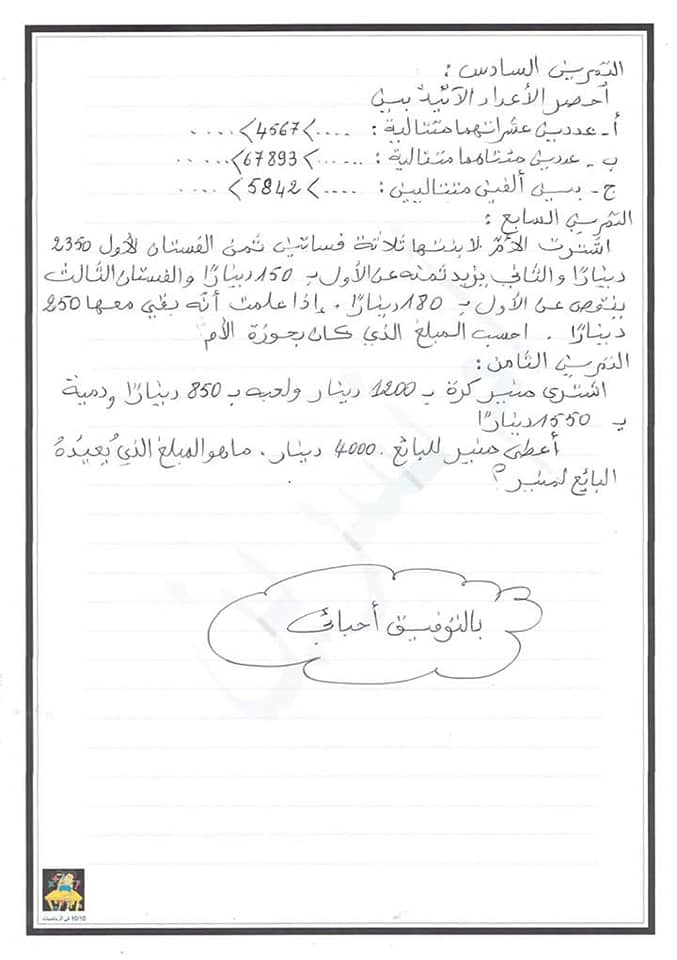 التمرين السادس :
أحصر الأعداد الآتية بين
أ - عددين عشراتهما متتالية : ....〉4567〈.....
ب - عددين مئتاهما متتالية : ......〉67893〈.....
ج - بين ألفين متتاليين : ....〉5842〈.....
التمرين السابع :
اشترت الأم لابنتها ثلاثة فساتين ثمن الفستان الأول 2350
دينارًا والثاني يزيد ثمنه عن الأول بـ 150 دينارًا والفستان الثالث
ينقص عن الأول بـ 180 دينارًا . إذا علمت أنه بقي معها 250
دينارًا . احسب المبلغ الذي كان بحوزة الأم
التمرين الثامن :
اشترى منير كرة بـ 1200 دينار ولعبه بـ 850 دينارًا ودمية
بـ 1550 دينارًا
أعطى منير للبائع 4000 دينار . ما هو المبلغ الذي يُعيدُهُ
البائع لمنير ؟
بالتوفيق أحبائي
10/10 في الرياضيات